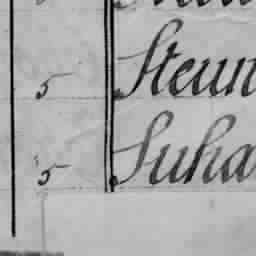 5 Steun
5 Suha